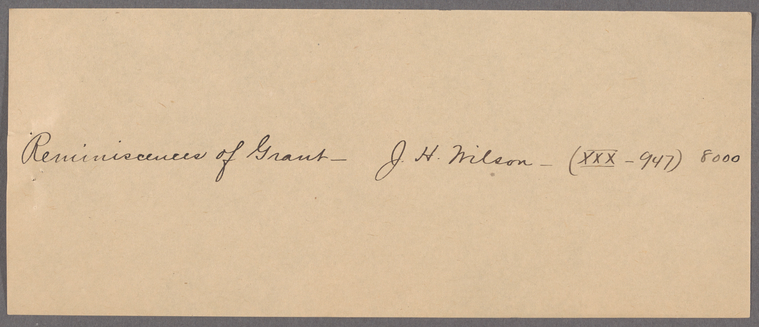 Reminiscences of Grant – J. H. Wilson – (XXX – 947) 8000